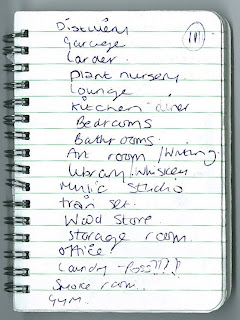 Distillery
Garage
Larder
plant nursery
Lounge
Kitchen diner
Bedrooms
Bathrooms
Art room / Writing
Library / Whiskey
Music Studio
train set
Wood Store
Storage room
office
Laundry - Poss!!!!
Smoke room
Gym